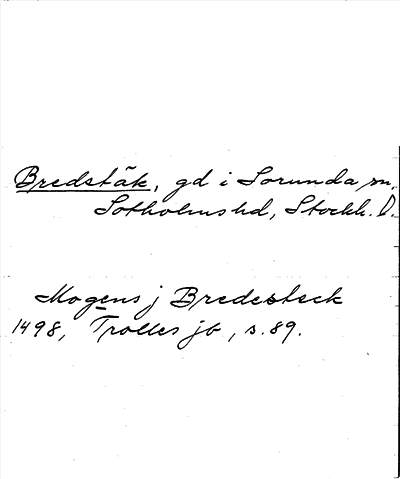 Bredstäk, gd i Sorunda sn.
Sotholms hd, Stockh. D.
Mogens j Bredesteck
1498, Trolles jb, s. 89.